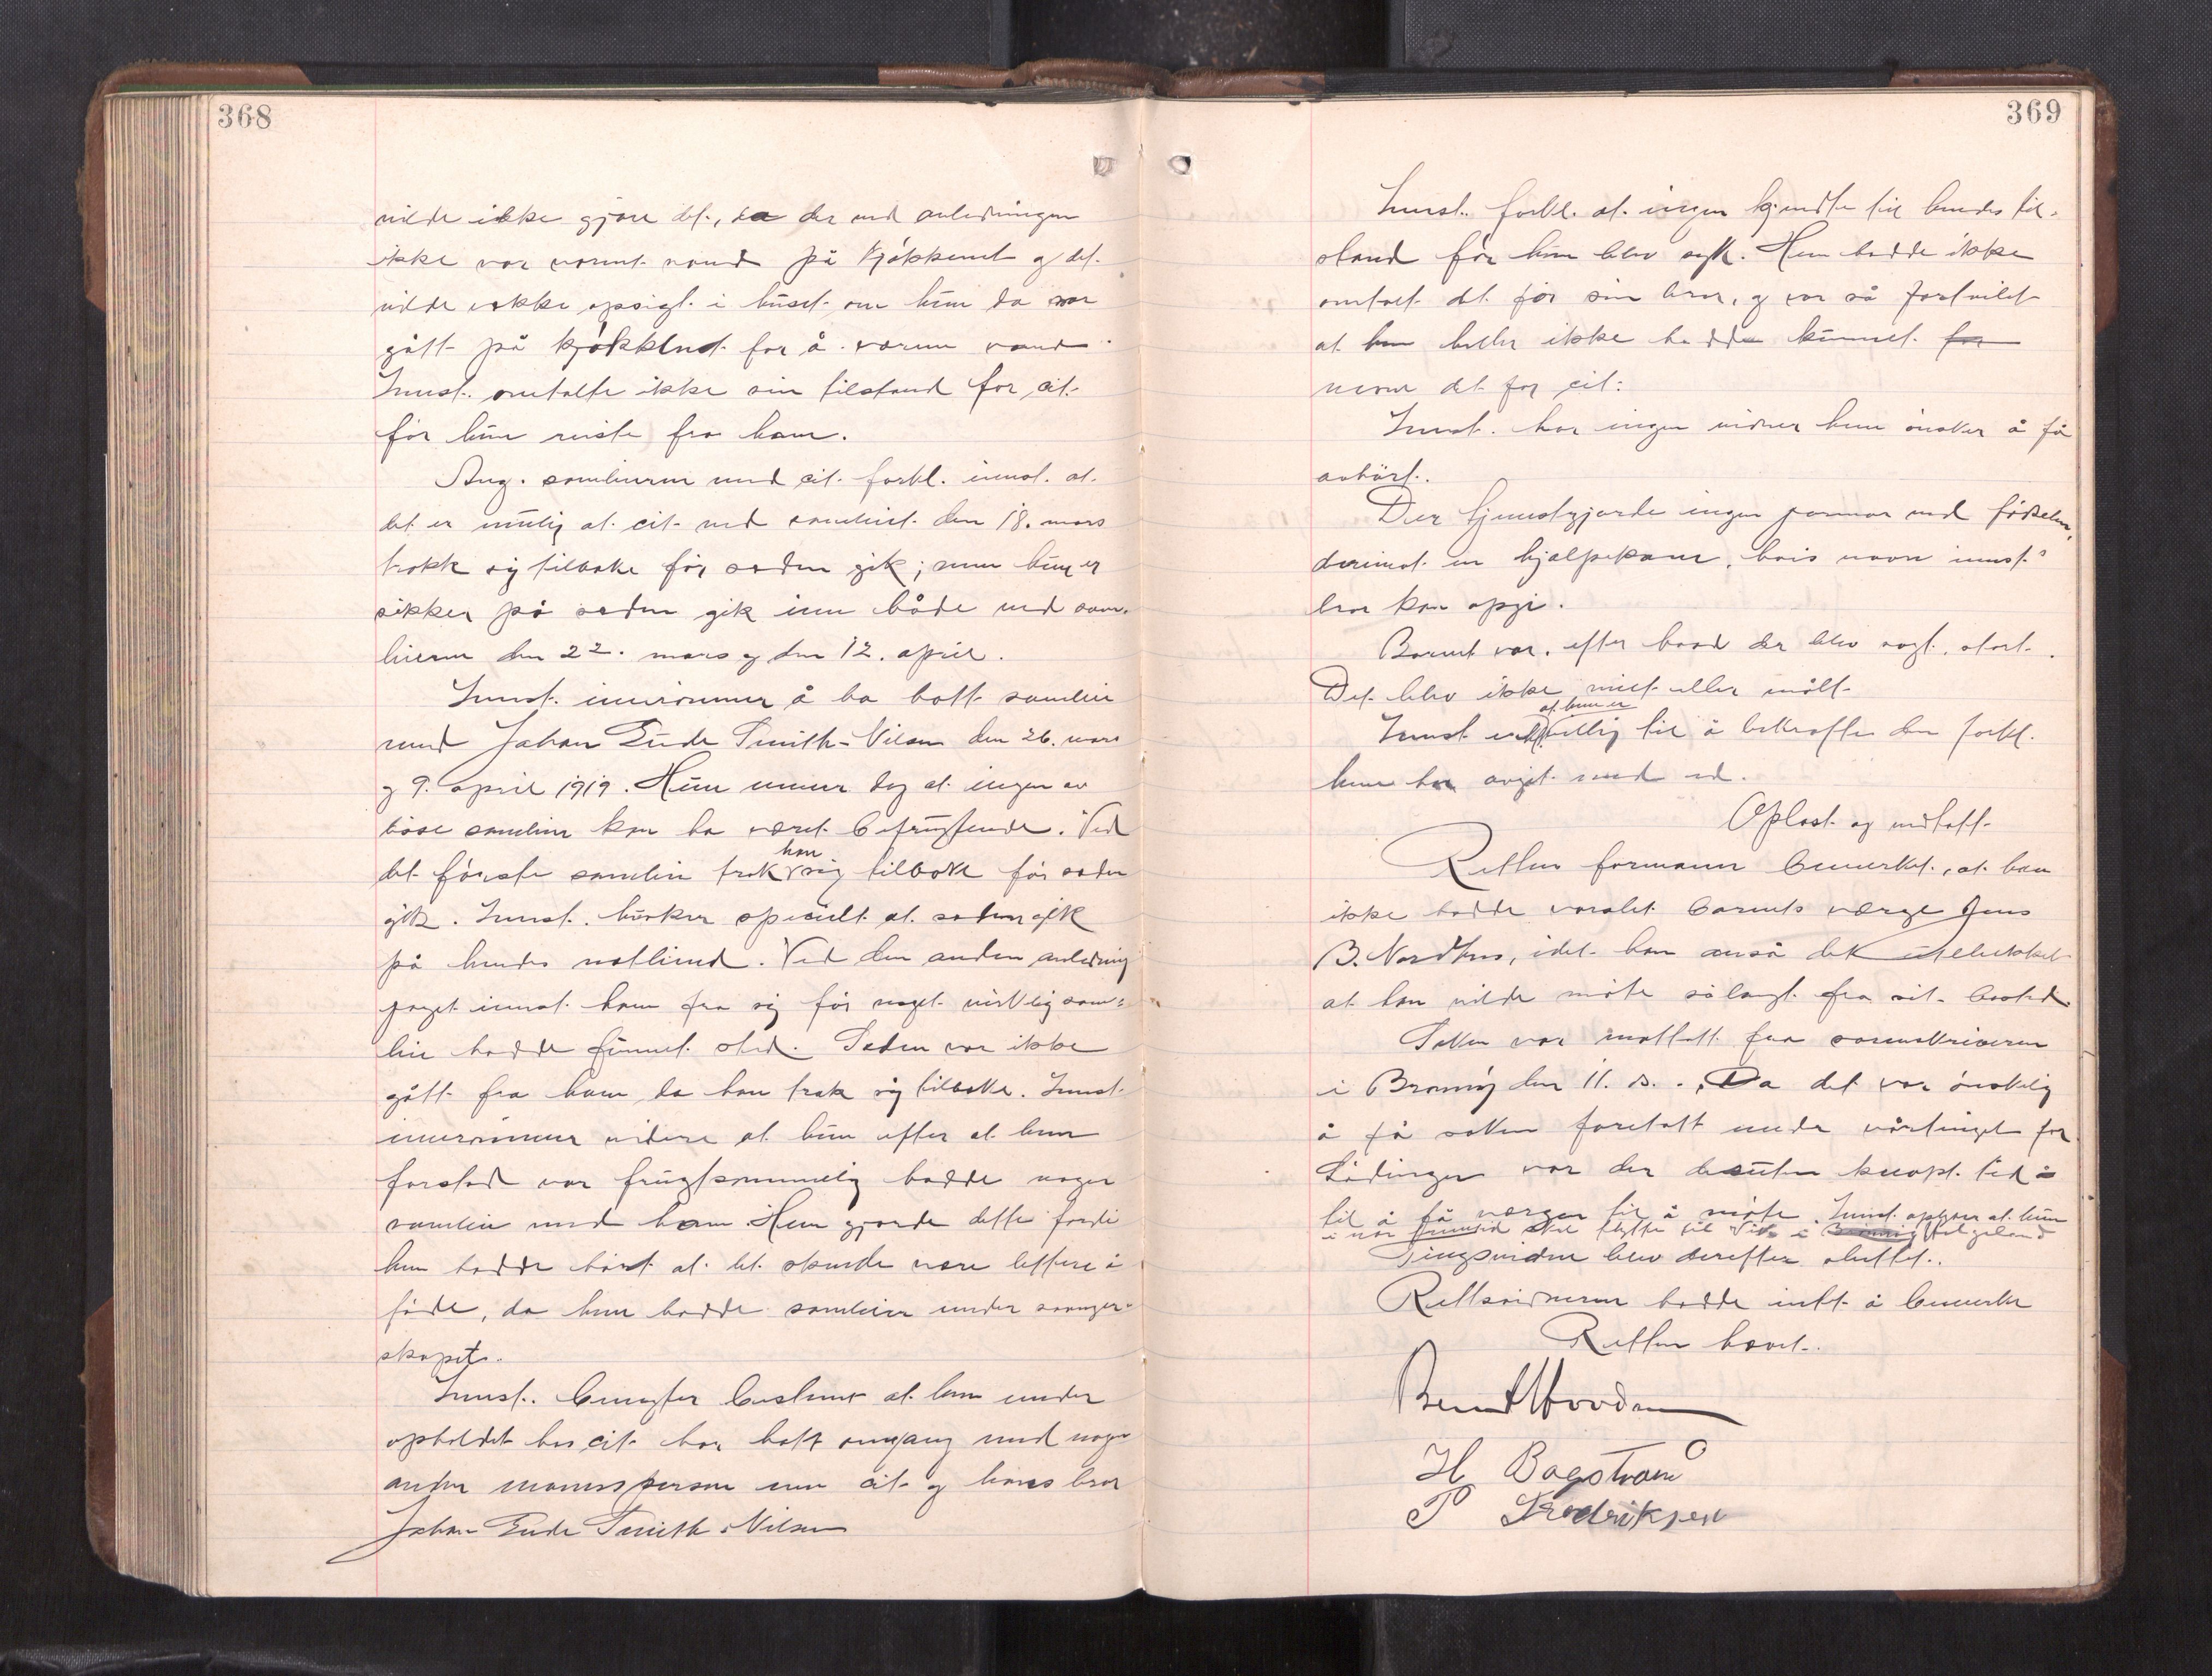 368
vilde ikke gjøre det, da der ved anledningen
ikke var varmt vand på kjøkkenet og det
vilde vekke opsigt i huset om hun da var
gått på kjøkkenet for å varme vand.
Innst. omtalte ikke sin tilstand for cit.
før hun reiste fra ham.
Ang. samleierne med cit. forkl. innst. at
det er mulig at cit. ved samleiet den 18. mars
trakk sig tilbake før sæden gik; men hun er
sikker på sæden gik inn både ved sam-
leierne den 22. mars og den 12. april.
Innst. innrømmer å ha hatt samleie
med Johan Eude Smith-Nilsen den 26. mars
og 9. april 1919. Hun mener dog at ingen av
disse samleier kan ha været befrugtende. Ved
det første samleie trak han sig tilbake før sæden
gik. Innst. husker specielt at sæden gik
på hendes natlinned. Ved den anden anledning
jaget innst. ham fra sig før noget virkelig sam-
leie hadde funnet sted. Sæden var ikke
gått fra ham da han trak sig tilbake. Innst.
innrømmer videre at hun efter at hun
forstod var frugtsommelig hadde noger
samleier med ham. Hun gjorde dette fordi
hun hadde hørt at det skulde være lettere å
føde, da hun hadde samleier under svanger-
skapet.
Innst. benegter bestemt at hun under
opholdet hos cit. har hatt omgang med nogen
anden mannsperson enn cit. og hans bror
Johan Eude Smith-Nilsen
369
Innst. forkl. at ingen kjendte til hendes til-
stand før hun blev syk. Hun hadde ikke
omtalt det for sin bror, og var så fortvilet
at hun heller ikke hadde kunnet for
nevne det for cit.
Innst. har ingen vidner hun ønsker å få
avhørt.
Der tjenstgjorde ingen jormor ved fødselen,
derimot en hjælpekone, hvis navn innst.s
bror kan opgi.
Barnet var, efter hvad der blev sagt, stort.
Det blev ikke veiet eller målt.
Innst. at hun er villig til å bekrefte den forkl.
hun har avgit med ed.
Oplæst og vedtatt.
Rettens formann bemerket, at han
ikke hadde varslet barnets værge Jens
B. Nordhus, idet han anså det utelukket
at han vilde møte så langt fra sit bosted.
Saken var mottatt fra sorenskriveren
i Brønnøy den 11. ds. Da det var ønskelig
å få saken foretatt under vårtinget for
Lødingen var der desuten knapt tid
til å få værgen til å møte. Innst. oplyser at hun
i nær fremtid skal flytte til Vik i Helgeland
Tingsvidnet blev derefter sluttet.
Rettsvidnerne hadde intet å bemerke
Retten hævet.
H Bagstrøm
P Fredriksen